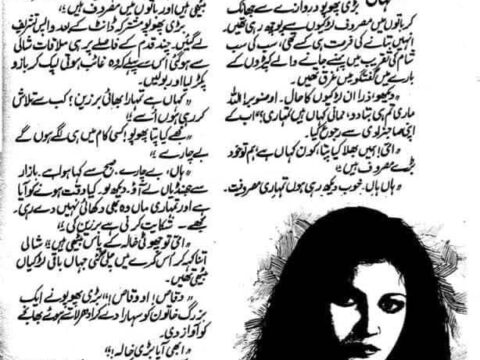 بڑی پھوپو دروازے سے جھانک
کر باتوں میں مصروف لڑکیوں سے پوچھ رہی تھیں۔
انہیں بتانے کی فرصت ہی کسے تھی، سب کی سب
شام کی تقریب میں پہنے جانے والے کپڑوں کے
بارے میں گفتگو میں غرق تھیں۔
"دیکھو ذرا ان لڑکیوں کا حال۔ او صنوبر! اللہ
ماری تم ہی بتا دو، نمانی کہاں ہیں تمہاری؟" اب کے
اپنی صاحبزادی سے رجوع کیا۔
"امی! ہمیں بھلا کیا پتا، کون کہاں ہے، ہم تو خود
بڑے مصروف ہیں۔"
"ہاں ہاں۔ خوب دیکھ رہی ہوں تمہاری مصروفیت۔
بیٹھی ہیں اور باتوں میں مصروف ہیں"
بڑی پھوپو مشترکہ ڈانٹ کے بعد واپس تشریف
لے گئیں۔ چند قدم کے فاصلے پر ہی ملاقات شالی
سے ہو گئی اس سے پہلے کہ وہ غائب ہوتی لپک کر بازو
پکڑ لیا اور بولیں۔
"کہاں ہے تمہارا بھائی برزین؟ کب سے تلاش
کر رہی ہوں اسے"
"مجھے کیا پتا پھوپو! کسی کام میں ہی لگے ہوں گے
بے چارے"
"ہاں، بے چارے۔ صبح سے کہا ہوا ہے۔ بازار
سے جھنڈیاں لے آؤ۔ دیکھ لو۔ کیا وقت ہونے کو آیا
ہے اور تمہاری ماں وہ بھی دکھائی نہیں دے رہی۔
مجھے۔ شکایت کرنی ہے برزین کی"
"امی تو چھوٹی خالہ کے پاس بیٹھی ہیں" شالی
اتنا کہہ کر اس کمرے میں چلی گئی جہاں باقی لڑکیاں
بیٹھی تھیں۔
"وقاص! او وقاص!" بڑی پھوپو نے ایک
بزرگ خاتون کو سہارا دے کر ادھر لاتے ہوئے بھانجے
کو آواز دی۔
"ابھی آیا بڑی خالہ!"